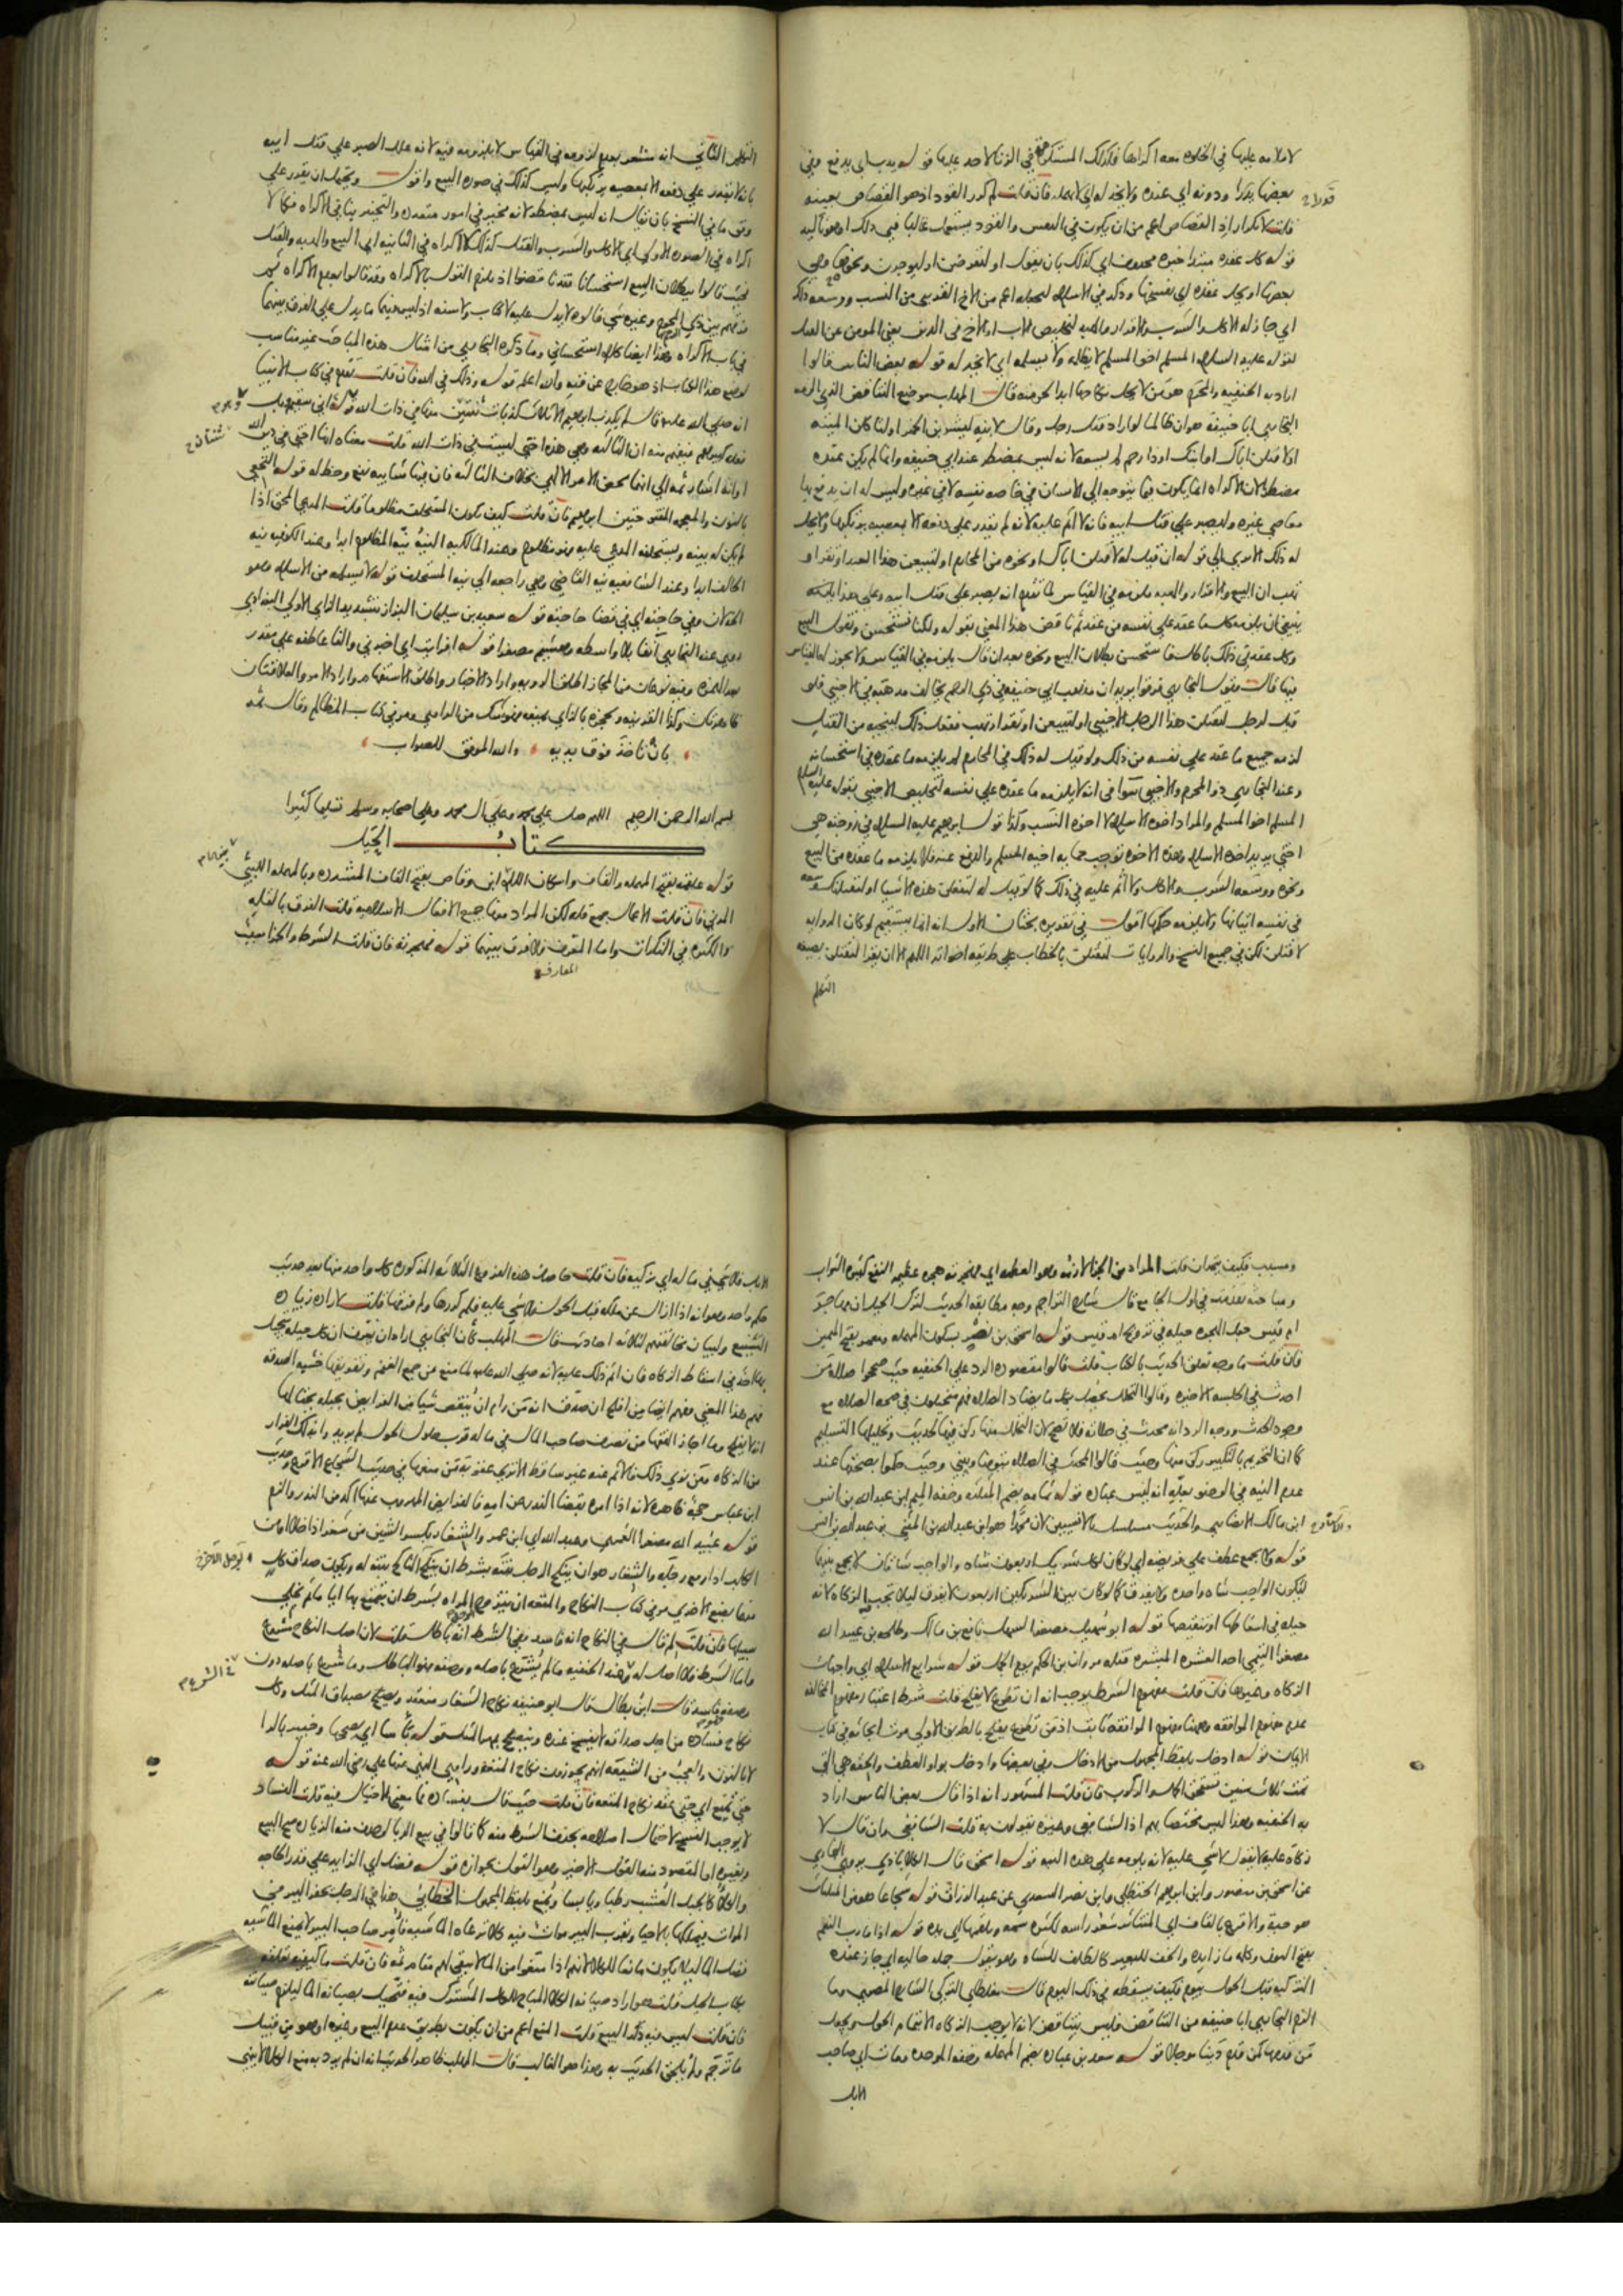 لا ملامه عليها في الخلوه معه اكراها فكذلك المستكرهة في الزنا لاحد عليها قوله يذب اي يدفع وفي
بعضها يدرا ودونه اي عنده ولا يخذله اي لا يهمله فان قلت لم كرر القود اذ هو القصاص بعينه
قلت لا تكرار اذ القصاص اعم من ان يكون في النفس والقود يستعمل غالبا في ذلك او هو تاكيد
قوله كل عقده مبتدا خبره محذوف اي كذلك بان يقول او لتقرضن او ليوجرن ونحوها وفي
بعضها او يحل عقده اي يفسخها وذكر في الاسلام ليجعله اعم من الاخ القريب من النسب ووسعه ذلك
اي جاز له الاكل والشرب والاقرار والهبه لتخليص الاب او الاخ في الدين يعني المومن عن القتل
لقوله عليه السلام المسلم اخو المسلم لا يظلمه ولا يسلمه اي لا يخذله قوله بعض الناس قالوا
اراد به الحنفيه والمحرم هو من لا يحل نكاحها ابدا لحرمته قال المهلب موضع التناقض الذي الزمه
البخاري ابا حنيفه هو ان ظالما لو اراد قتل رجل وقال لابنه لتشربن الخمر او لتاكلن الميته
او لاقتلن اباك او ابنك او ذا رحم لم يسعه لانه ليس بمضطر عند ابي حنيفه وانما لم يكن عنده
مضطرا لان الاكراه انما يكون فيما يتوجه الي الانسان في خاصه نفسه لا في غيره وليس له ان يدفع بها
معاصي غيره وليصبر علي قتل ابيه فانه لا اثم عليه لانه لم يقدر علي دفعه الا بمعصيه يرتكبها ولا يحل
له ذلك الا تري الي قوله ان قيل له لاقتلن اباك او نحوه من المحارم او لتبيعن هذا العبد او تقر او
تهب ان البيع والاقرار والهبه يلزمه في القياس لما تقدم انه يصبر علي قتل ابيه وعلي هذا
ينبغي ان يلزمه كل ما عقد علي نفسه من عقد ثم ناقض هذا المعني بقوله ولكنا نستحسن ونقول البيع
وكل عقد في ذلك باطل فاستحسن بطلان البيع ونحوه بعد ان قال يلزمه في القياس ولا يجوز له القياس
فيها قال وقول البخاري فرقوا يريد ان مذهب ابي حنيفه في ذي الرحم بخالف مذهبه في الاجنبي فلو
قيل لرجل لتقتلن هذا الرجل الاجنبي او لتبيعن او تقر او تهب ففعل ذلك لينجيه من القتل
لزمه جميع ما عقد علي نفسه من ذلك ولو قيل له ذلك في المحارم لم يلزمه ما عقده في استحسانه
وعند البخاري ذو المحرم والاجنبي سوا في انه لا يلزمه ما عقده علي نفسه لتخليص الاجنبي لقوله عليه السلام
المسلم اخو المسلم والمراد اخوه الاسلام لا اخوه النسب وكذا قول ابراهيم عليه السلام في زوجته هي
اختي يريد اخوه الاسلام وهذه الاخوه توجب حمايه اخيه المسلم والدفع عنه فلا يلزمه ما عقده من البيع
ونحوه ووسعه الشرب والاكل ولا اثم عليه في ذلك كما لو قيل له لتفعلن هذه الاشيا او لنقتلنك وسعه
في نفسه اتيانها ولا يلزمه حكمها اقول في تقريره بحثان الاول انه انما يستقيم لو كان الروايه
لاقتلن لكن في جميع النسخ والروايات لنقتلن بالخطاب علي طريقه اخواته اللهم الا ان يقرا لنقتلن بصيغه
التكلم
التكلم الثاني انه مشعر بعدم لزومه في القياس لا بلزومه فيه لانه علل الصبر علي قتل ابيه
بانه لا يقدر علي دفعه الا بمعصيه يرتكبها وليس كذلك في صوره البيع واقول ويحتمل ان يقدر علي
وفق ما في النسخ بان يقال انه ليس بمضطر لانه مخير في امور متعدده والتخيير ينافي الاكراه فكما لا
اكراه في الصوره الاولي اي الاكل والشرب والقتل كذلك لا اكراه في الثانيه اي البيع والهبه والقتل
فحيث قالوا ببطلان البيع استحسانا فقد ناقضوا اذ يلزم القول بالاكراه وقد قالوا بعدم الاكراه ثم
فرقهم بين ذي المحرم وغيره شي قالوه لا يدل عليه لا كتاب ولا سنه اذ ليس فيهما ما يدل علي الفرق بينهما
في باب الاكراه وهذا ايضا كلام استحساني وما ذكره البخاري من امثال هذه المباحث غير مناسب
لوضع هذا الكتاب اذ هو خارج عن فنه والله اعلم قوله وذلك في الله فان قلت تقدم في كتاب الانبيا
انه صلي الله عليه قال لم يكذب ابراهيم الا ثلاث كذبات ثنتين منها في ذات الله قوله اني سقيم وبل
فعله كبيرهم فيفهم منه ان الثالثه وهي هذه اختي ليست في ذات الله قلت معناه انها اختي في دين الله
بالنون والمعجمه المفتوحتين ابراهيم فان قلت كيف يكون المستحلف مظلوما قلت المدعي المحق اذا
لم يكن له بينه ويستحلفه المدعي عليه فهو مظلوم وعند المالكيه النيه نيه المظلوم ابدا وعند الكوفيه نيه
الحالف ابدا وعند الشافعيه نيه القاضي وهي راجعه الي نيه المستحلف قوله لا يسلمه من الاسلام وهو
الخذلان وفي حاجته اي في قضا حاجته قوله سعيد بن سليمان البزاز بتشديد الزاي الاولي البغدادي
روي عنه البخاري انفا بلا واسطه وهشيم مصغرا قوله افرايت اي اخبرني والفا عاطفه علي مقدر
بعد الهمزه وفيه نوعان من المجاز اطلق الرويه واراد الاخبار واطلق الاستفهام واراد الامر والعلاقتان
ظاهرتان وكذا القرينه وتحجزه بالزاي تمنعه وهو شك من الراوي ومر في كتاب المظالم وقال ثمه
بان تاخذ فوق يديه والله الموفق للصواب
بسم الله الرحمن الرحيم اللهم صل علي محمد وعلي ال محمد وعلي اصحابه وسلم تسليما كثيرا
كتاب الحيل
قوله علقمه بفتح المهمله والقاف واسكان اللام ابن وقاص بفتح القاف المشدده وبالمهمله الليثي
المدني فان قلت الاعمال جمع قله لكن المراد منها جميع الافعال الاسلاميه قلت الفرق بالقله
والكثره في النكرات واما المعارف فلا فرق بينهما قوله فهجرته فان قلت الشرط والجزا سبب
المعارف
ومسبب فكيف يتحدان قلت المراد من الجزا لازمه وهو العظمه اي فهجرته هجره عظيمه النفع كثيره الثواب
ومباحثه تقدمت في اول الجامع قال شارح التراجم وجه مطابقه الحديث لترك الحيل ان مهاجر
ام قيس جعل الهجره حيله في تزوج ام قيس قوله اسحق بن نصر بسكون المهمله ومعمر بفتح الميمين
فان قلت ما وجه تعلق الحديث بالكتاب قلت قالوا مقصوده الرد علي الحنفيه حيث صححوا صلاه من
احدث في الجلسه الاخيره وقالوا التحلل يحصل بكل ما يضاد الصلاه فهم متحيلون في صحه الصلاه مع
وجود الحدث ووجه الرد انه محدث في صلاته فلا تصح لان التحلل منها ركن فيها لحديث وتحليلها التسليم
كما ان التحريم بالتكبير ركن منها وحيث قالوا المحدث في الصلاه يتوضا ويبني وحيث حكموا بصحتها عند
عدم النيه في الوضو بعله انه ليس عباده قوله ثمامه بضم المثلثه وخفه الميم ابن عبد الله بن انس
ابن مالك الانصاري والحديث مسلسل بالانسيين لان محمدا هو ابن عبد الله بن المثني بن عبد الله بن انس
قوله ولا يجمع عطف علي فريضه اي لو كان لكل شريك اربعون شاه والواجب شاتان لا يجمع بينهما
ليكون الواجب شاه واحده ولا يفرق كما لو كان بين الشريكين اربعون لا يفرق ليلا تجب الزكاه لانه
حيله في اسقاطها او تنقيصها قوله ابو سهيل مصغر السهل نافع بن مالك وطلحه بن عبيد الله
مصغرا التيمي احد العشره المبشره قتله مروان بن الحكم يوم الجمل قوله شرايع الاسلام اي واجبات
الزكاه وغيرها فان قلت مفهوم الشرط يوجب انه ان تطوع لا يفلح قلت شرط اعتبار مفهوم المخالفه
عدم مفهوم الموافقه وههنا مفهوم الموافقه ثابت اذ من تطوع يفلح بالطريق الاولي مرت ابحاثه في كتاب
الايمان قوله ادخل بلفظ المجهول من الادخال وفي بعضها وادخل بواو العطف والحقه هي التي
تمت ثلاث سنين تستحق الحمل والركوب فان قلت المشهور انه اذا قال بعض الناس اراد
به الحنفيه وهذا ليس مختصا بهم اذ الشافعي وغيره يقولون به قلت الشافعي وان قال لا
زكاه عليه لا يقول لا شي عليه لانه يلومه علي هذه النيه قوله اسحق قال الكلاباذي يروي البخاري
عن اسحق بن منصور وابن ابراهيم الحنظلي وابن نصر السعدي عن عبد الرزاق قوله شجاعا هو من المثلثات
هو حيه والاقرع بالقاف اي المتناثر شعر راسه لكثره سمه ويلقمها اي يده قوله اذا ما رب النعم
بفتح النون وكلمه ما زايده والخف للبعير كالظلف للشاه وهو يقول جمله حاليه اي جاز عنده
التزكيه قبل الحول بيوم فكيف يسقطه في ذلك اليوم قال مغلطاي التركي الشارح المصري وما
الزم البخاري ابا حنيفه من التناقض فليس بتناقض لانه لا يوجب الزكاه الا بتمام الحول ويجعل
من قدمها كمن قدم دينا موجلا قوله سعد بن عباده بضم المهمله وخفه الموحده ومات اي صاحب
الابل
الابل فلا شي في ماله اي تركته فان قلت حاصل هذه الفروع الثلاثه المذكوره كل واحد منها بعد حديث
حكم واحد وهو انه اذا ازال عن ملكه قبل الحول فلا شي عليه فلم كررها ولم فرقها قلت لاراده زياده
التشنيع ولبيان مخالفتهم لثلاثه احاديث قال المهلب كان البخاري اراد ان يعرف ان كل حيله يتحيل
بها احد في اسقاط الزكاه فان اثم ذلك عليه لانه صلي الله عليه لما منع من جمع الغنم وتفريقها خشيه الصدقه
فهم هذا المعني وفهم ايضا من افلح ان صدق انه من رام ان ينقص شيا من الفرايض بحيله يحتالها
انه لا يفلح وما اجاز الفقها من تصرف صاحب المال في ماله قرب حلول الحول لم يريد وا بذلك الفرار
من الزكاه ومن نوي ذلك فالاثم عنه غير ساقط الا تري عقوبه من منعها في حديث الشجاع الاقرع وحديث
ابن عباس حجه ظاهره لانه اذا امره بقضا النذر عن امه فالفرايض المهروب عنها اكد من النذر والزم
قوله عبيد الله مصغرا العمري وعبد الله اي ابن عمر والشغار بكسر الشين من شغر اذا خلا او من
الكلب اذا رفع رجله والشغار هو ان ينكح الرجل بنته بشرط ان ينكح الناكح بنته له ويكون صداق كل
منهما بضع الاخري مر في كتاب النكاح والمتعه ان يتزوج المراه بشرط ان يتمتع بها اياما ثم يخلي
سبيلها فان قلت لم قال في النكاح انه فاسد وفي الشرط انه باطل قلت لان اصل النكاح مشروع
واما الشرط فلا اصل له وعند الحنفيه ما لم يشرع باصله ووصفه فهو الباطل وما شرع باصله دون
وصفه فاسد قال ابن بطال قال ابو حنيفه نكاح الشغار منعقد ويصلح بصداق المثل وكل
نكاح فساده من اجل صداقه لا يفسخ عنده وينصلح بمهر المثل
حتي تمتع اي حتي عقد نكاح المتعه فان قلت حيث قال بفساده فما معني الاحتيال فيه قلت الفساد
لا يوجب الفسخ لاحتمال اصلاحه بحذف الشرط منه كما قالوا في بيع الربا لو حذف منه الزياده صح البيع
وبغيره اما المقصود منه القول الاخير وهو القول بجوازه قوله فضل اي الزايد علي قدر الحاجه
والكلا كالجبل العشب رطبا ويابسا ويمنع بلفظ المجهول الخطابي هذا في الرجل يحفر البير في
الموات فيملكها بالاحيا وبقرب البير موات فيه كلا ترعاه الماشيه فامر صاحب البير لا يمنع الماشيه
فضل الماء ليلا يكون مانعا للكلا لانهم اذا منعوا من الماء لا يبقي لهم مقام ثمه فان قلت ما كيفيه تعلقه
بكتاب الحيل قلت هو اراد صيانه الكلا المباح المشترك فيه فتحيل بصيانه الماء ليلزم صيانته
فان قلت ليس فيه ذكر البيع قلت المنع اعم من ان يكون بطريق عدم البيع وغيره او هو من قبيل
ما ترجم ولم يلحق الحديث به وهذا هو الغالب قال المهلب ظاهر الحديث انه ان لم يرد به منع الكلا لا ينهي